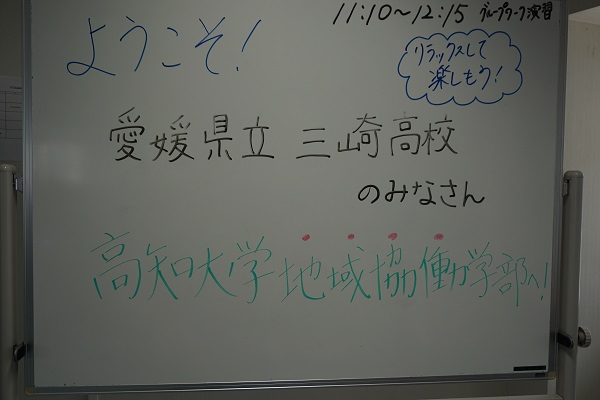 11:10～12:15 グループワーク演習
ようこそ!
リラックスして
楽しもう!
愛媛県立 三崎高校
のみなさん
高知大学地域協働学部へ!